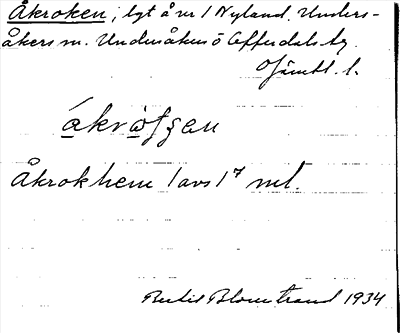 Åkroken, lgt å nr 1 Nyland, Unders-
åkers sn. Undersåkers o Offerdals tg.
Jämtl. l.
åkrò̀fsen
Åkrokhem 1 avs 1⁷ mtl.
Bertil Blomstrand 1934